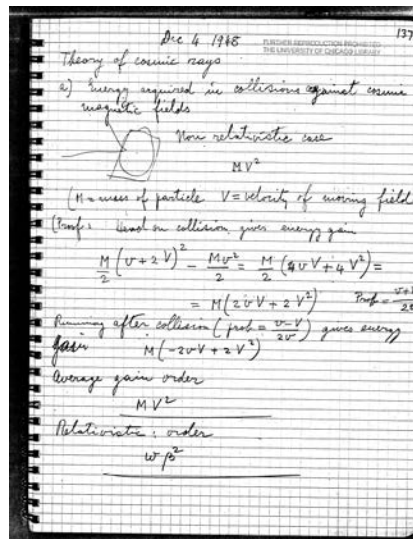 Dec 4 1948
137
FURTHER REPRODUCTION PROHIBITED
THE UNIVERSITY OF CHICAGO LIBRARY
Theory of cosmic rays
a) Energy acquired in collisions against cosmic
magnetic fields
Non relativistic case
MV²
(M = mass of particle V = velocity of moving field
(Proof: Head on collision gives energy gain
M/2 (v+2V)² - Mv²/2 = M/2 (4vV+4V²) =
= M(2vV+2V²) Prob =
after collision (prob = v-V/2v) gives energy
gain M(-2vV+2V²)
Average gain order
MV²
Relativistic: order
wβ²